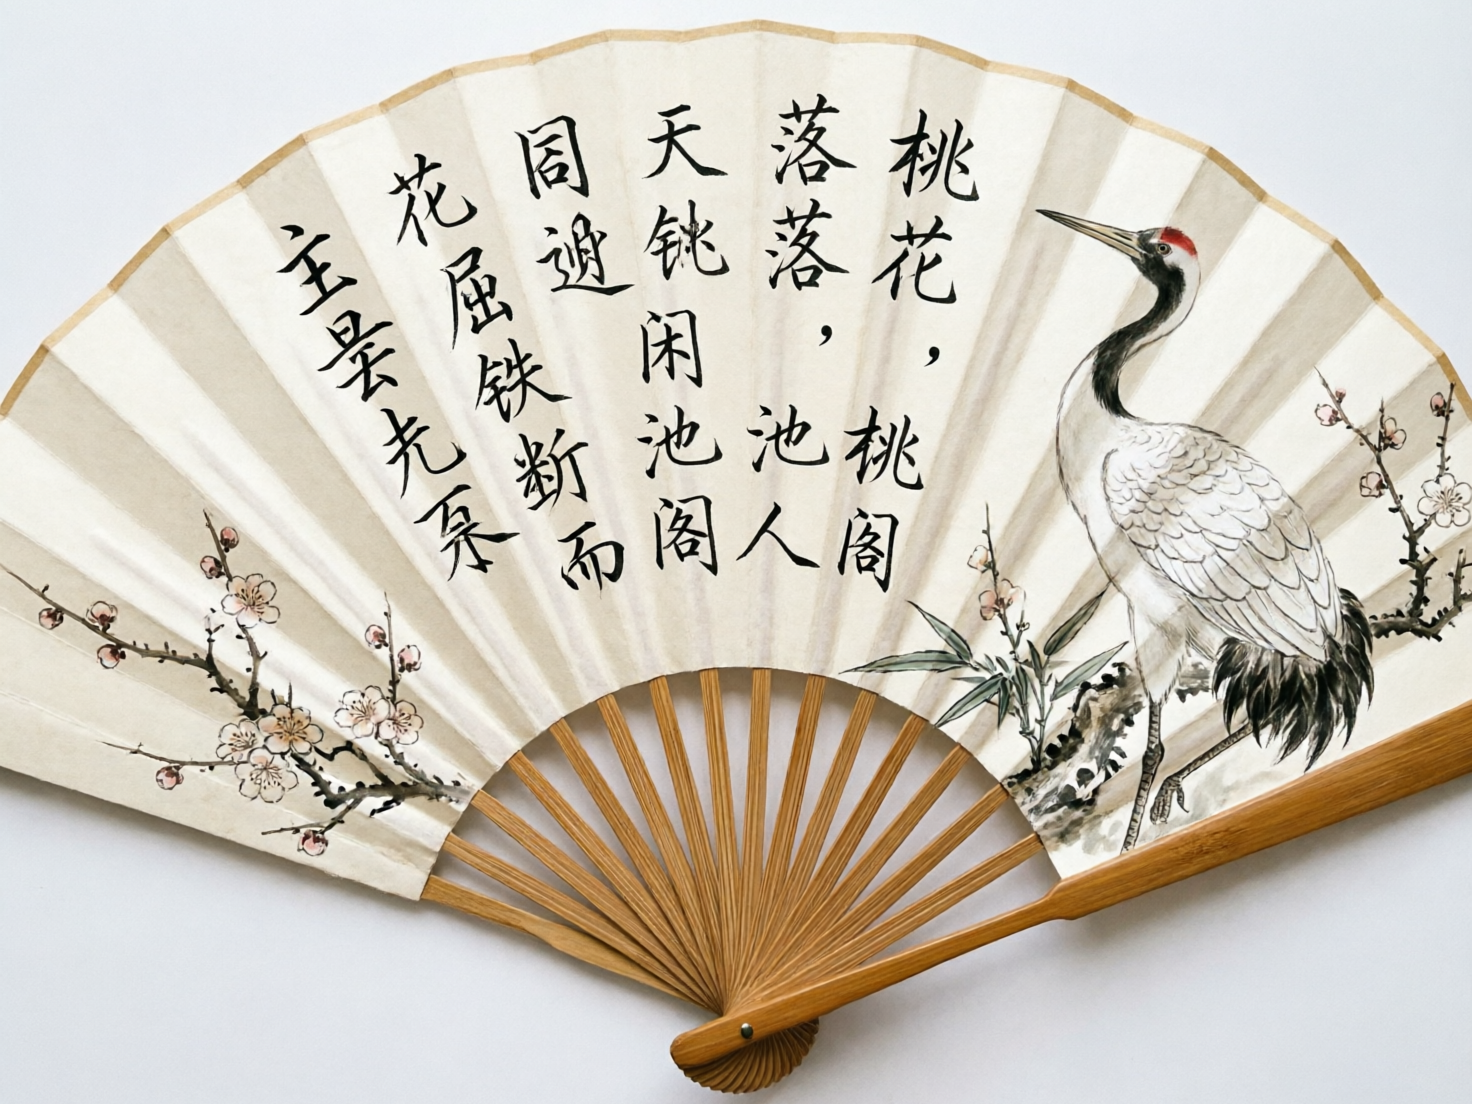 桃花，桃阁
落落，池人
天铫闲池阁
同
花屈铁断而
主昙